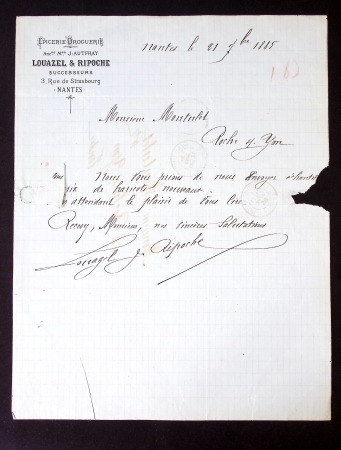 EPICERIE DROGUERIE
ANCNE MON J. AUFFRAY
LOUAZEL & RIPOCHE
SUCCESSEURS
3, Rue de Strasbourg
NANTES
Nantes, le 21 7bre 1885
Monsieur
Roche s/ Yon
Nous vous prions de nous envoyer
prix de haricots nouveaux.
attendant le plaisir de vous lire
Recevez, Monsieur, nos sincères Salutations
Louazel & Ripoche